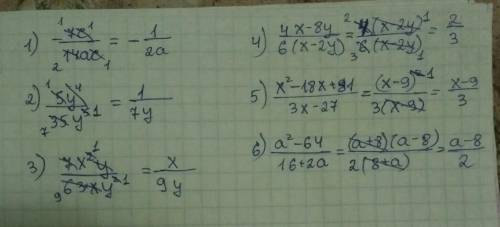 1) 7x/14ax = - 1/2a
2) 5y⁴/35y⁵ = 1/7y
3) 7x²y/63xy² = x/9y
4) 4x-8y/6(x-2y) = 4(x-2y)/6(x-2y) = 2/3
5) x²-18x+81/3x-27 = (x-9)²/3(x-9) = x-9/3
6) a²-64/16+2a = (a+8)(a-8)/2(8+a) = a-8/2